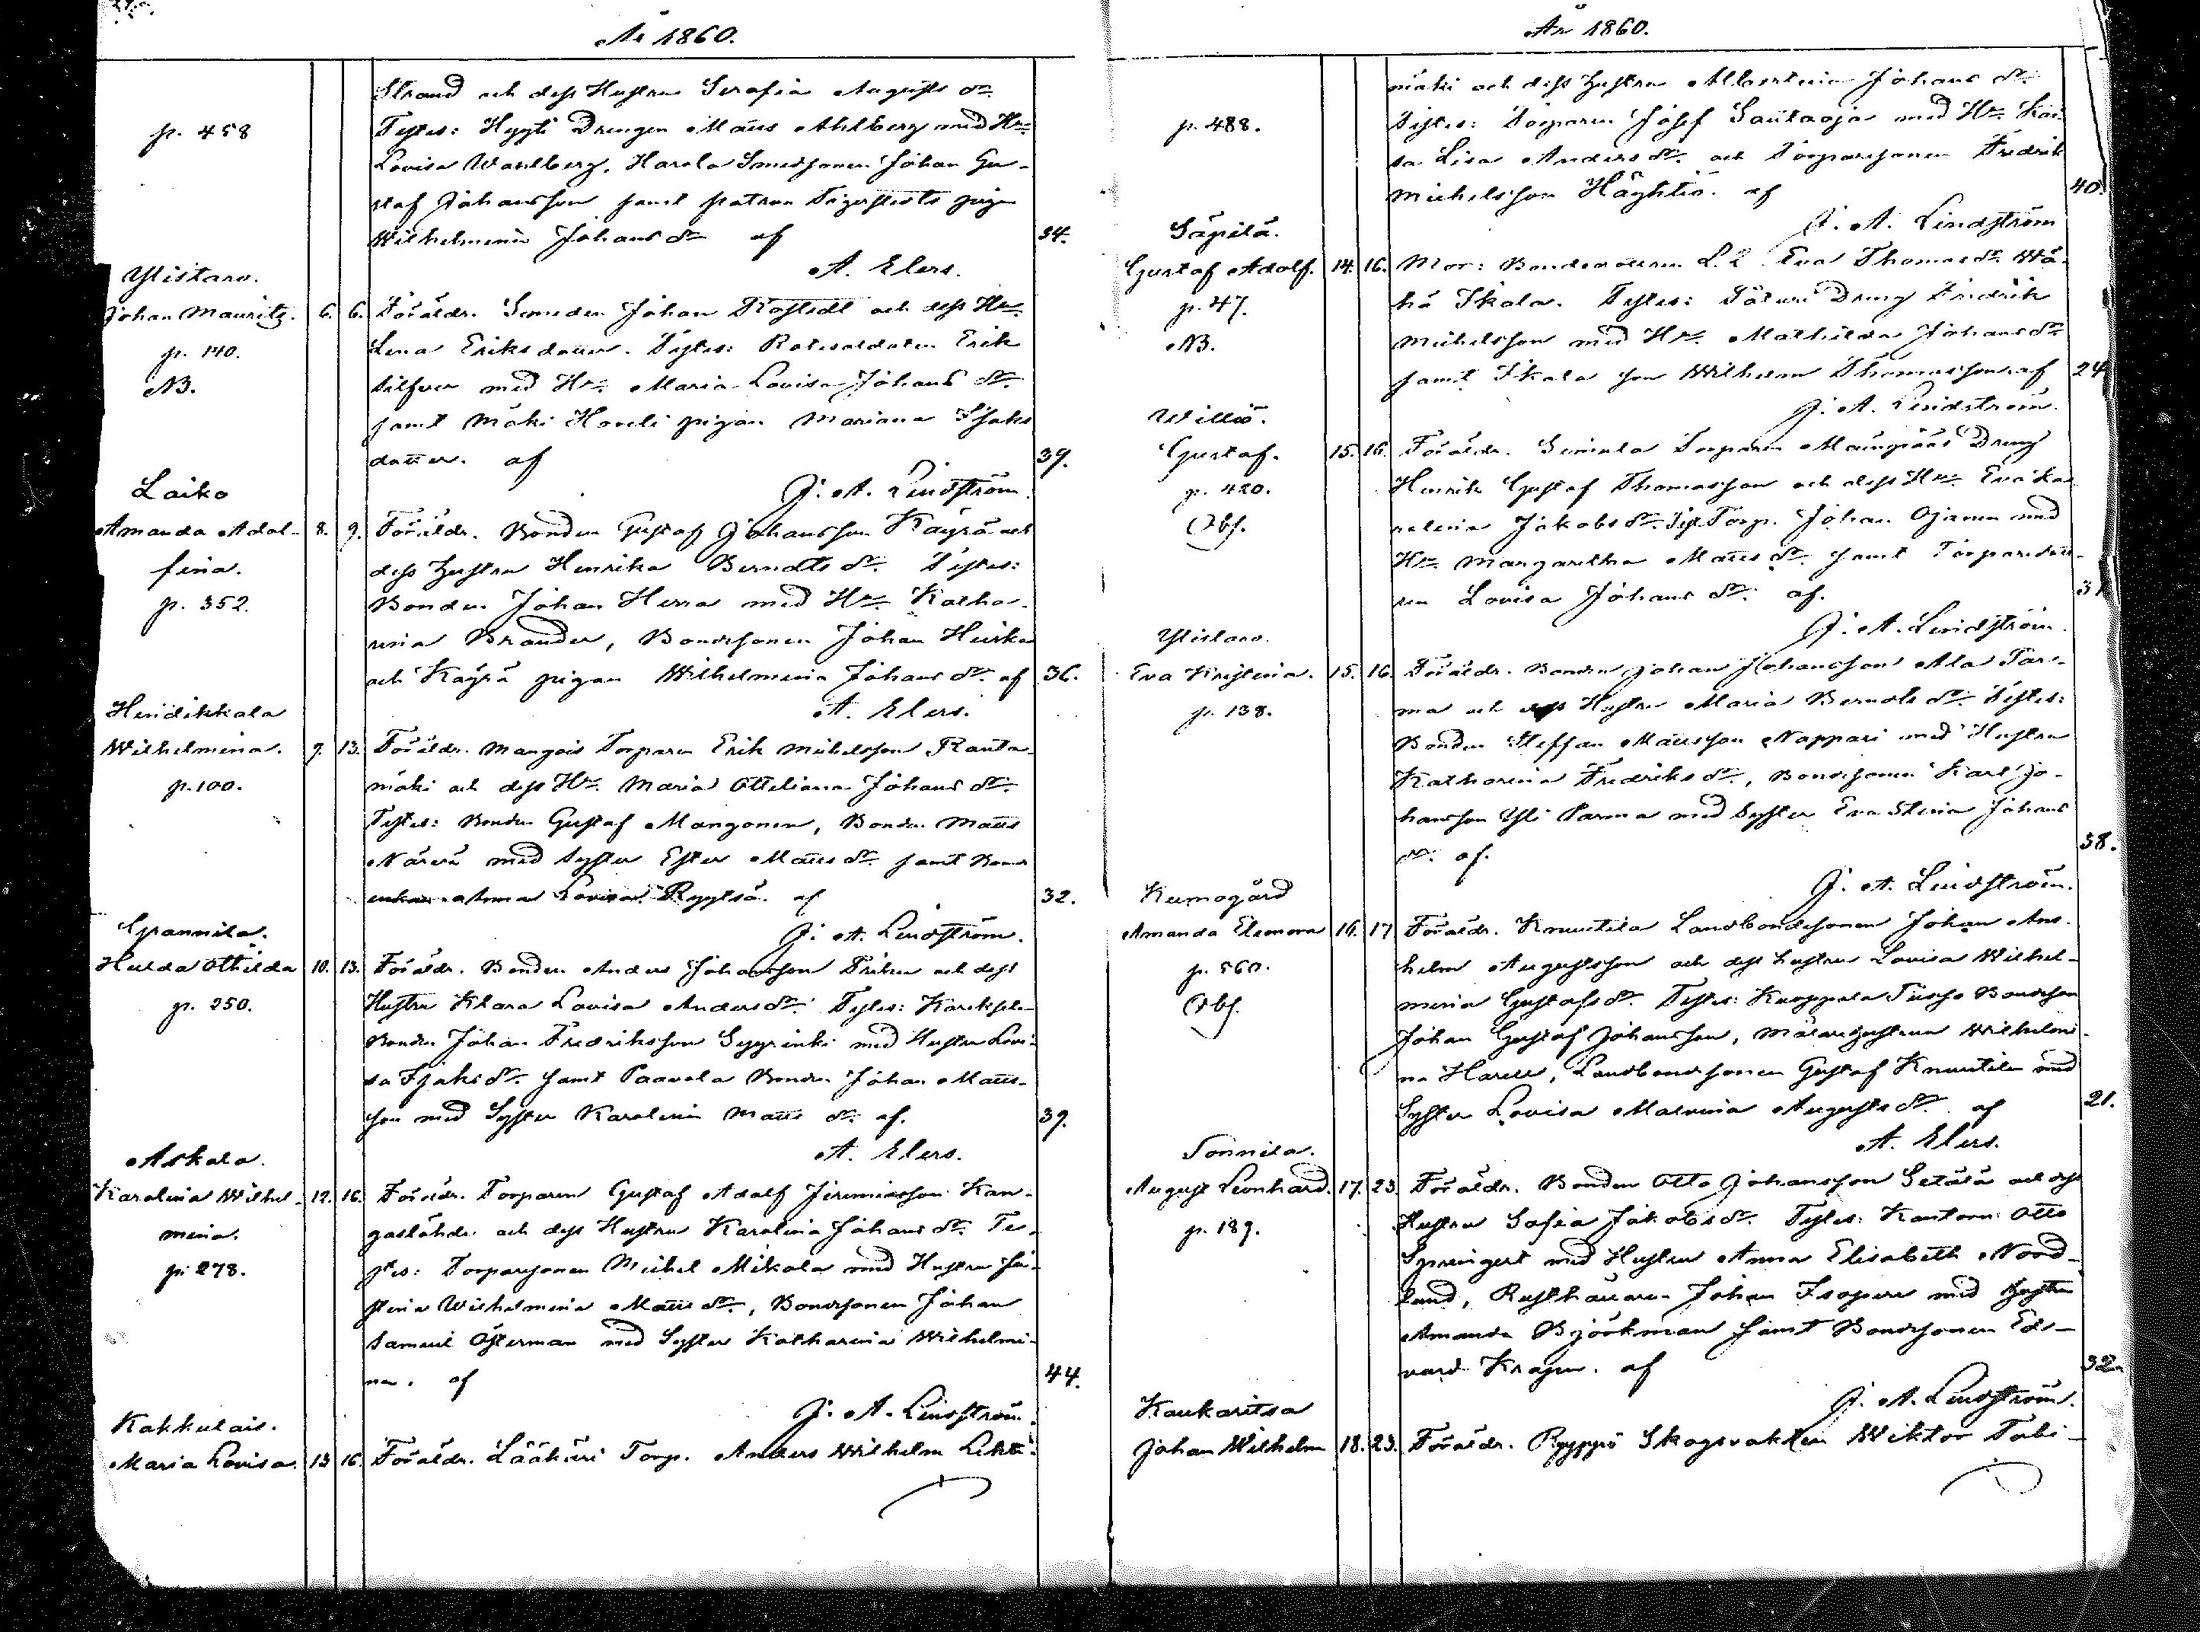 År 1860.
p. 458
Strand och dess Hustru Serafia Augusts dr.
Testes: Hyyti Drengen Matts Ahlberg med Hru
Lovisa Wahlberg, Harola Smedsonen Johan Gu-
staf Johansson samt patron Tigerstedts piga
Wilhelmina Johans dr af 34.
A. Elers.
Ylistaro.
Johan Mauritz. 6. 6. Föräldr. Smeden Johan Rostedt och dess Hru
p. 140. Lena Eriksdotter. Testes: Rotesoldaten Erik
NB. Silfver med Hru Maria Lovisa Johans dr
samt Mäki Haveli pigan Mariana Isaks
dotter. af 39.
J. A. Lindström.
Laiko
Amanda Adol- 8. 9. Föräldr. Bonden Gustaf Johansson Käyrä och
fina. dess Hustru Henrika Berndts dr. Testes:
p. 352. Bonden Johan Herra med Hru Katha-
rina Brander, Bondsonen Johan Heirka
och Käyrä pigan Wilhelmina Johans dr. af 36.
A. Elers.
Heidikkala
Wilhelmina. 9. 13. Föräldr. Mangois Torparen Erik Michelsson Ranta-
p. 100. mäki och dess Hru Maria Otteliana Johans dr.
Testes: Bonden Gustaf Mangonen, Bonden Matts
Närvä med Syster Ester Matts dr. samt Bond
enkan Anna Lovisa Ryytsä. af 32.
J. A. Lindström.
Grannila.
Hulda Othilda 10. 13. Föräldr. Bonden Anders Johansson Friken och dess
p. 250. Hustru Klara Lovisa Anders dr. Testes:
Bonden Johan Fredriksson Sypinki med Hustru Lovi-
sa Isaks dr. samt Paavola Bonden Johan Matts-
son med Syster Karolina Matts dr. af. 39.
A. Elers.
Askola.
Karolina Wilhel- 12. 16. Föräldr. Torparen Gustaf Adolf Jeremiasson Kan-
mina. gaslähde och dess Hustru Karolina Johans dr. Te-
p. 278. stes: Torparsonen Michel Mikola med Hustru Ju-
stina Wilhelmina Matts dr., Bondsonen Johan
Samuel Österman med Syster Katharina Wilhelmi-
na. af 44.
J. A. Lindström.
Kakkulais.
Maria Lovisa. 13 16. Föräldr. Lääkäri Torp. Anders Wilhelm Lehti-
År 1860.
mäki och dess Hustru Albertina Johans dr.
p. 488. Testes: Torparen Josef Santaoja med Hru Kai-
sa Lisa Anders dr. och Torparsonen Fredrik
Michelsson Häyhtiö. af 40.
J. A. Lindström
Säpilä.
Gustaf Adolf. 14. 16. Mor: Bondedottren Eva Thomas dr. Wä-
p. 47. hä Ikala. Testes: Dreng Fredrik
NB. Michelsson med Hru Mathilda Johans dr
samt Ikala son Wilhelm Thomasson. af 24
J. A. Lindström.
Williö.
Gustaf. 15. 16. Föräldr. Simula Torparen Dreng
p. 420. Henrik Gustaf Thomasson och dess Hru Eva Ka-
Obs. rolina Jakobs dr. Test. Torp. Johan Ojanen med
Hru Margaretha Matts dr. samt Torparedott-
ren Lovisa Johans dr. af. 31
J. A. Lindström.
Ylistaro.
Eva Kristina. 15. 16. Föräldr. Bonden Johan Johansson Ala Par-
p. 138. ma och dess Hustru Maria Berndts dr. Testes:
Bonden Steffan Mattsson Nappari med Hustru
Katharina Fredriks dr., Bondsonen Karl Jo-
hansson Yli Parma med Syster Eva Stina Johans
dr. af. 38.
J. A. Lindström.
Kumogård
Amanda Eleonora 16. 17 Föräldr. Knuutila Landbondesonen Johan Ans-
p. 560. helm Augustsson och dess Hustru Lovisa Wilhel-
Obs. mina Gustafs dr. Testes: Knoppala Bondeson
Johan Gustaf Johansson, Målarehustrun Wilhelmi-
na Harell, Landbondsonen Gustaf Knuutila med
Syster Lovisa Malvina Augusts dr. af 21.
A. Elers.
Sonnila.
August Leonhard. 17. 23. Föräldr. Bonden Otto Johansson Setälä och dess
p. 189. Hustru Sofia Jakobs dr. Testes: Kantorn Otto
Springert med Hustru Anna Elisabeth Nord-
lund, Rusthållaren Johan Isopere med Hustru
Amanda Björkman samt Bondsonen Ed-
vard Krapu. af 32.
J. A. Lindström.
Kaukaritsa
Johan Wilhelm 18. 23. Föräldr. Ryyppö Skogsvakten Wiktor Tobi-